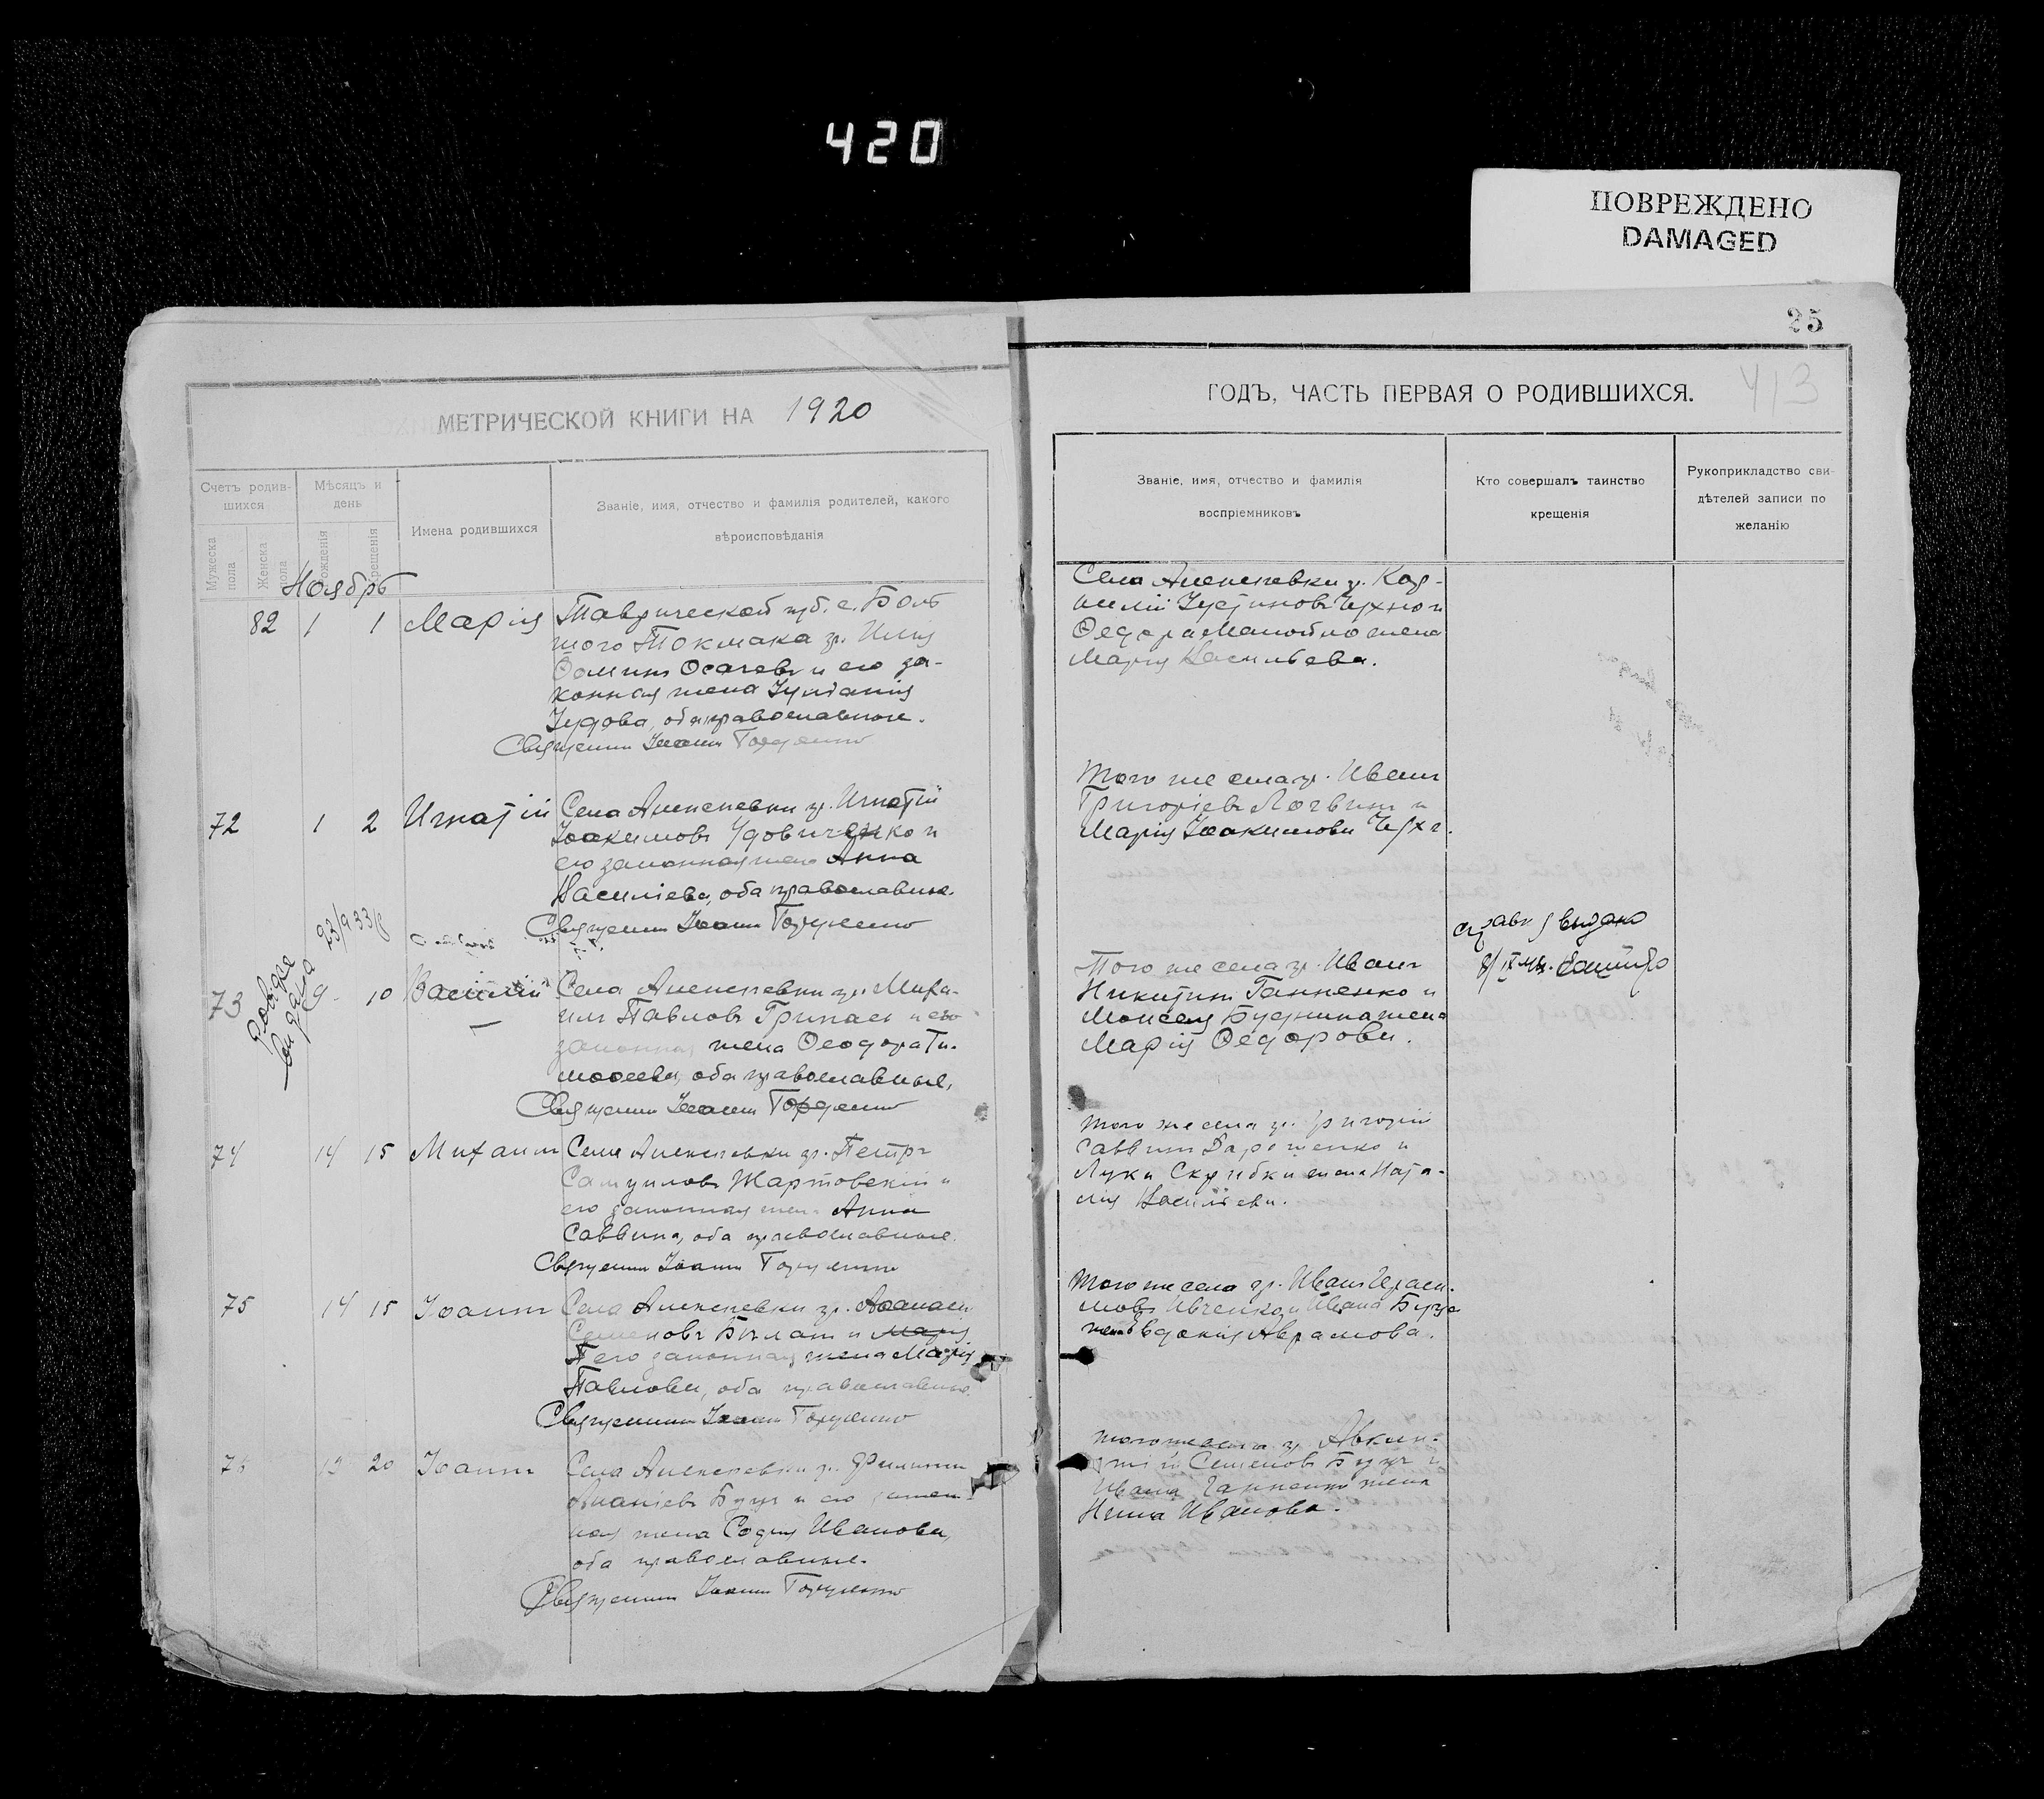 420
ПОВРЕЖДЕНО
DAMAGED
25
413
МЕТРИЧЕСКОЙ КНИГИ НА 1920
ГОДЪ, ЧАСТЬ ПЕРВАЯ О РОДИВШИХСЯ.
Счетъ родив-
шихся
Мужеска пола
Женска пола
Мѣсяцъ и
день
рожденія
крещенія
Имена родившихся
Званіе, имя, отчество и фамилія родителей, какого
вѣроисповѣданія
Званіе, имя, отчество и фамилія
воспріемниковъ
Кто совершалъ таинство
крещенія
Рукоприкладство сви-
дѣтелей записи по
желанію
Ноябрь
82 1 1 Марія Таврической губ. с. Боль
шого Токмака гр. Илія
Ѳоминъ и его за-
конная жена Іуліанія
оба православные.
Священникъ Іоаннъ Гордіенко
Села Алексеевки гр.
Ѳедора Манойло жена
Марія Васильева.
72 1 2 Игнатій Села Алексеевки гр. Игнатій
Іоакимовъ Удовиченко и
его законная жена Анна
Василіева, оба православные.
Священникъ Іоаннъ Гордіенко
Того же села гр. Иванъ
Григоріевъ Логвинъ и
Марія Іоакимова
73 9 10 Василій Села Алексеевки гр. Миха-
илъ Павловъ и его
законная жена Ѳеодора Ти-
моѳеева, оба православные,
Священникъ Іоаннъ Гордіенко
довідка
видана
23/9 33
Того же села гр. Иванъ
Никитинъ Ганненко и
Моисея жена
Марія Ѳедорова.
видано
74 14 15 Михаилъ Села Алексеевки гр. Петръ
Самуиловъ Жартовскій и
его законная жена Анна
Саввина, оба православные.
Священникъ Іоаннъ Гордіенко
Того же села гр. Григорій
Саввинъ и
Луки жена Ната-
лія Василіева.
75 14 15 Іоаннъ Села Алексеевки гр. Аѳанасій
Семеновъ и Марія
его законная жена Марія
Павлова, оба православные.
Священникъ Іоаннъ Гордіенко
Того же села гр. Иванъ Гераси-
мовъ Ивченко и Ивана
жена Евдокія Аврамова.
20 Іоаннъ Села Алексеевки гр. Филиппъ
Ананіевъ и его закон-
ная жена Софія Иванова,
оба православные.
Священникъ Іоаннъ Гордіенко
того же села гр.
Семеновъ и
Ивана Ганненко жена
Нина Иванова.